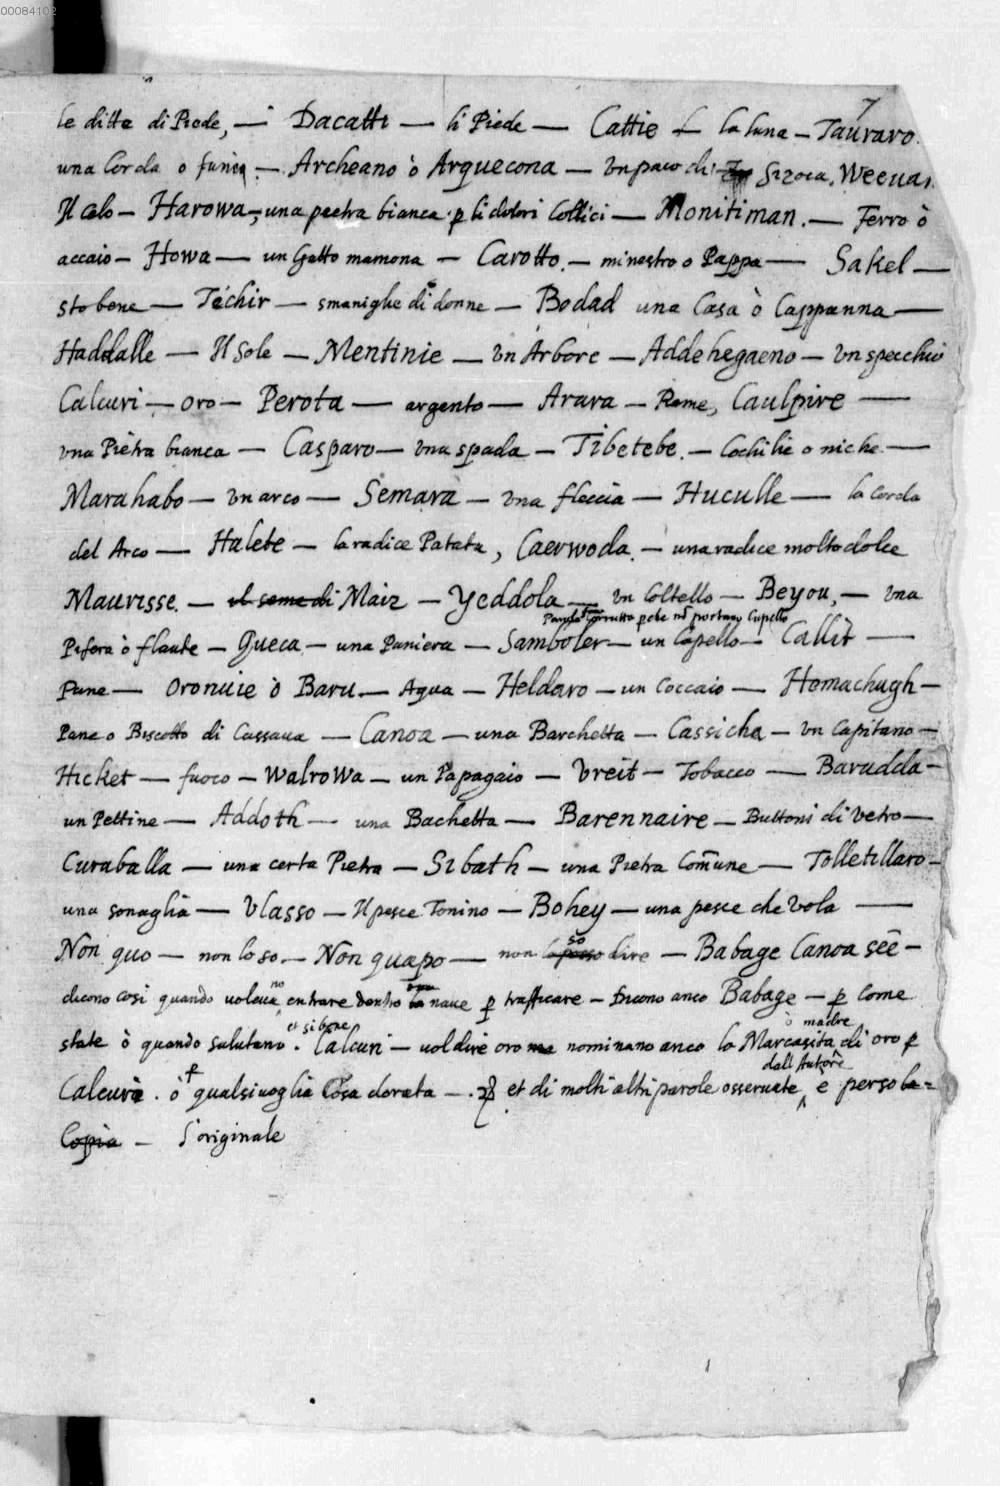 00084102
7
le ditte di Piede, — Dacatti — li Piede — Cattie — la luna — Tauraro.
una Corda o funia — Archeano ò Arquecona — un paco di Sizoia, Weeuar
Il Celo — Harowa — una peetra bianca p li dolori Collici — Monitiman. — Ferro ò
accaio — Howa — un Gatto mamona — Carotto. — minestro o Pappa — Sakel —
sto bene — Téchir — smaniglie di donne — Bodad una Casa ò Cappanna —
Haddalle — Il Sole — Mentinie — Un Arbore — Addehegaeno — Un specchio
Calcuri — oro — Perota — argento — Arara — Rame, Caulpire —
una Piètra bianca — Casparo — una spada — Tibetebe. — Cochilie o niche —
Marahabo — Un arco — Semara — Una fleccia — Huculle — la Corda
del Arco — Halete — la radice Patata, Caerwoda. — una radice molto dolce
Maurisse. — il seme di Maiz — Yeddola — Un Coltello — Beyou, — Una
Pifera ò flaute — Queca — una Paniera — Samboler — un Capello — Callit —
Pane — Oronuie ò Baru — Aqua — Heldaro — un Coccaio — Hemachugh —
Pane o Biscotto di Cassaua — Canoa — una Barchetta — Cassicha — Un Capitano —
Hicket — fuoco — Walrowa — un Papagaio — Vreit — Tobacco — Barudda —
un Pettine — Addoth — una Bachetta — Barennaire — Buttoni di Vetro —
Curaballa — una certa Pietra — Sibath — una Pietra Com̃une — Tolletillaro —
una sonaglia — Ulasso — Il pesce Tonino — Bohey — una pesce che Vola —
Non quo — non lo so — Non quapo — non lo posso so dire — Babage Canoa seē —
dicono così quando voleua no entrare dentro la nave p trafficare — Dicono anco Babage — p Come
state ò quando salutano et si bene. Calcuri — uol dire oro ma nominano anco la Marcasita ò madre di oro p
Calcuri. ò p qualsiuoglia Cosa dorata — . et di molti altri parole osseruate dall Autore e perso la
Copia — l'originale